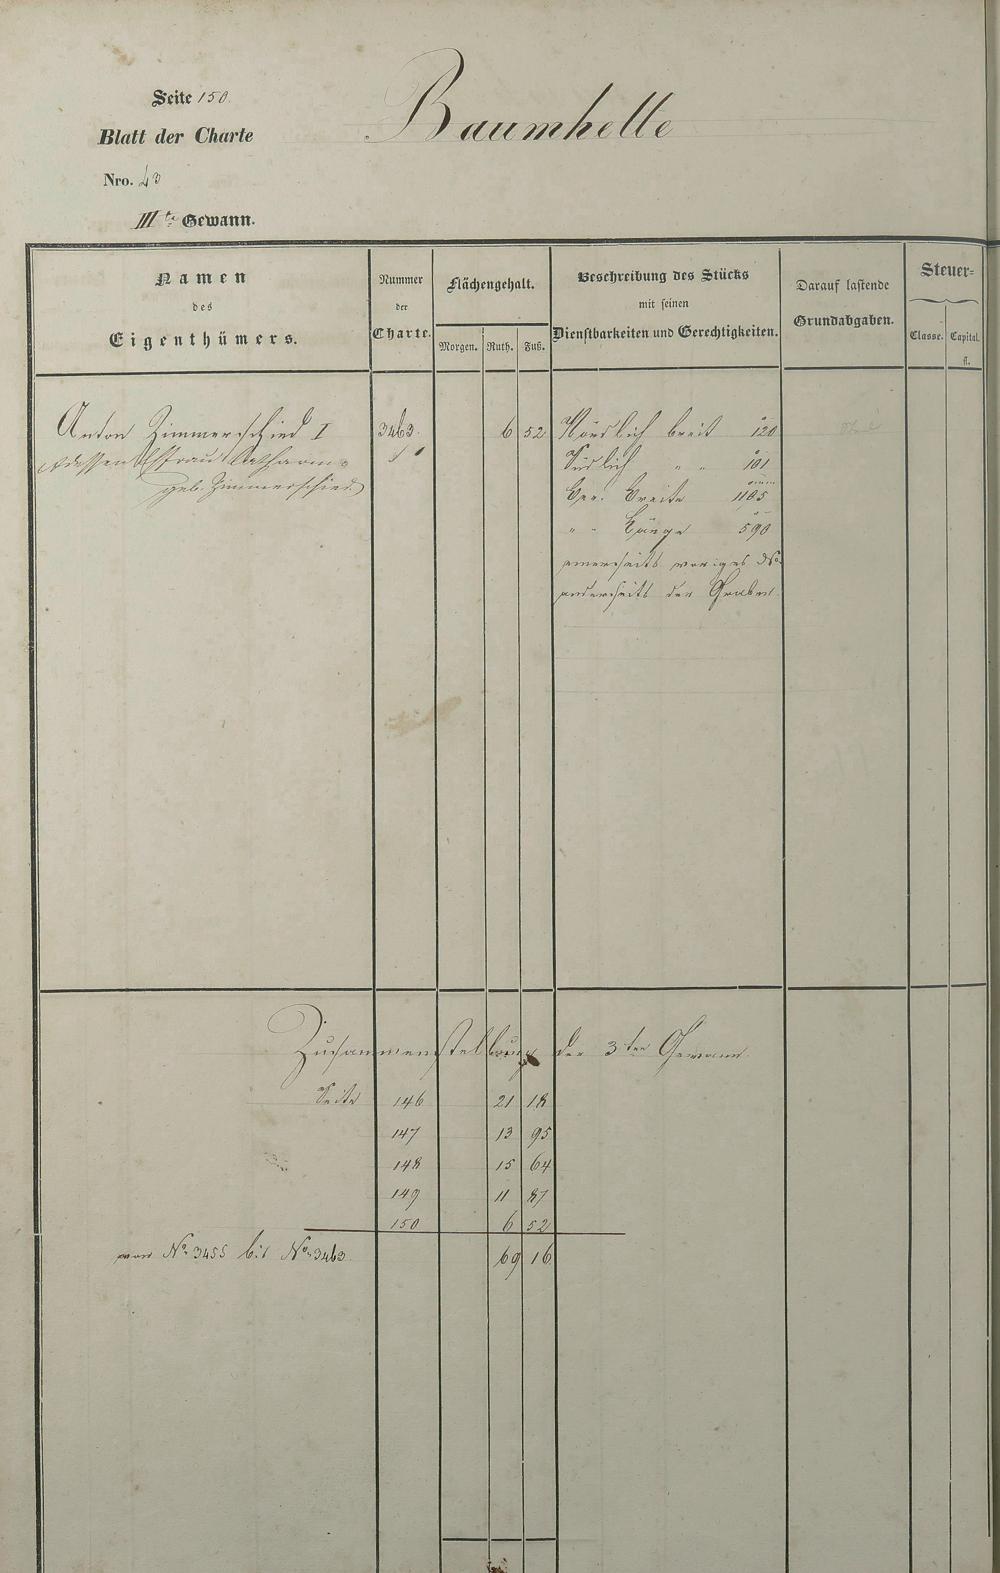 Seite 150.
Baumhelle
Blatt der Charte
Nro. 43
III te Gewann.
Namen
des
Eigenthümers.
Nummer
der
Charte.
Flächengehalt.
Morgen. Ruth. Fuß.
Beschreibung des Stücks
mit seinen
Dienstbarkeiten und Gerechtigkeiten.
Darauf lastende
Grundabgaben.
Steuer-
Classe. Capital.
fl.
Anton Zimmerschied I 3463. 6 52 Nördlich breit 120
& dessen Ehefrau Catharina Südlich " " 101
geb. Zimmerschied Ger. Breite 1105
" " Länge 590
einerseits voriges No
anderseits der Graben
Zusammenstellung der 3ten Gewann.
Seite 146 21 18
147 13 95
148 15 64
149 11 87
150 6 52
von No. 3455 bis No. 3463 69 16